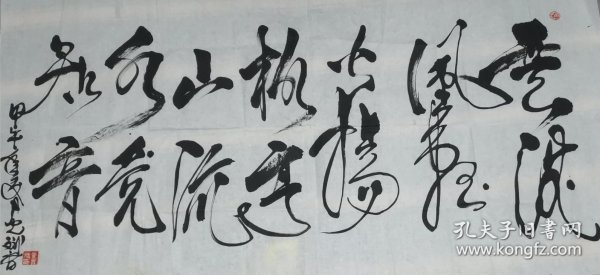 云淡
风轻
楊
柳高
山流
水觅
知音
甲午
孔夫子旧书网
www.kongfz.com